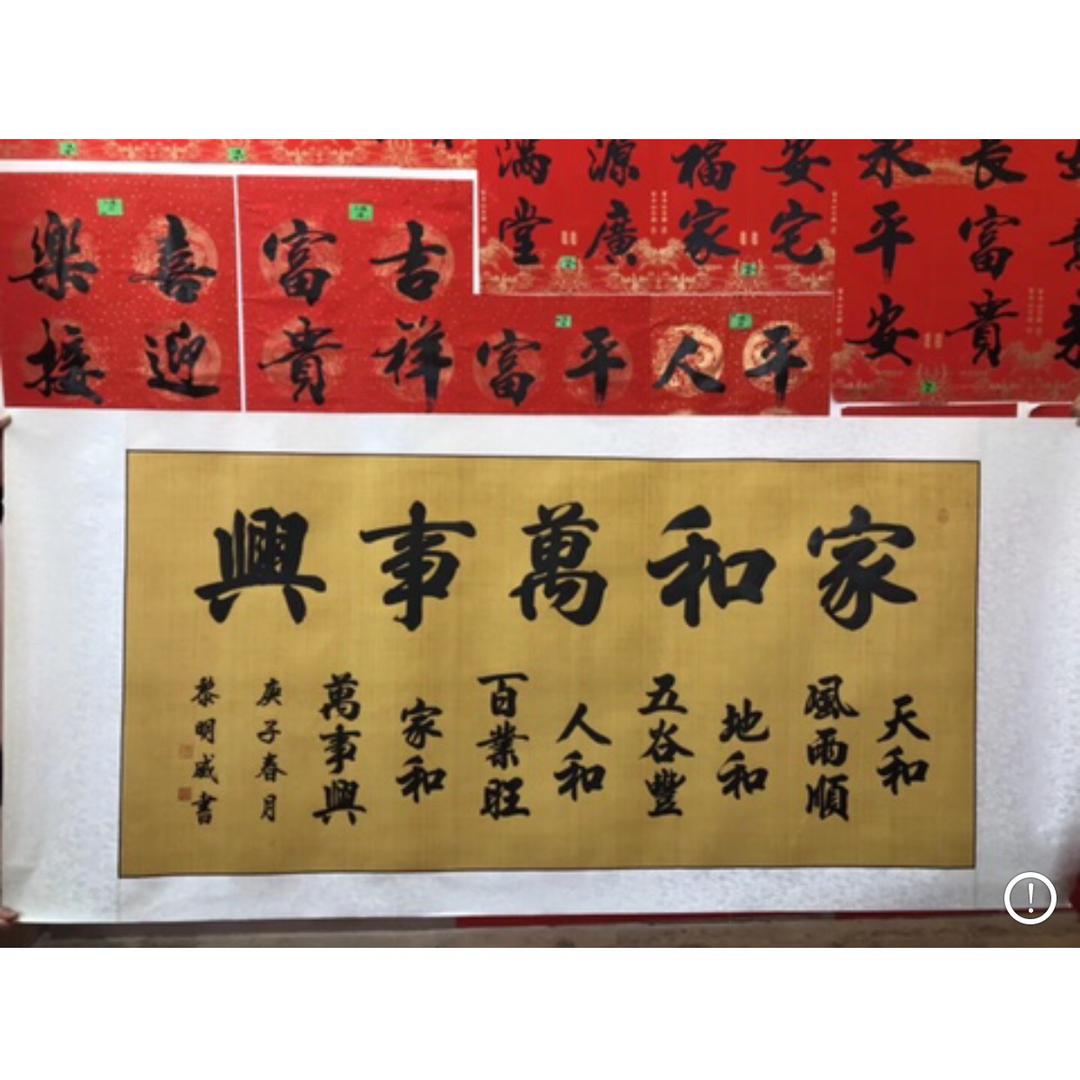 满源福安
堂廣家宅
永長
平富
安貴
樂喜
接迎
富吉
貴祥
富平人平
家和萬事興
天和
風雨順
地和
五谷豐
人和
百業旺
家和
萬事興
庚子春月
黎明威書